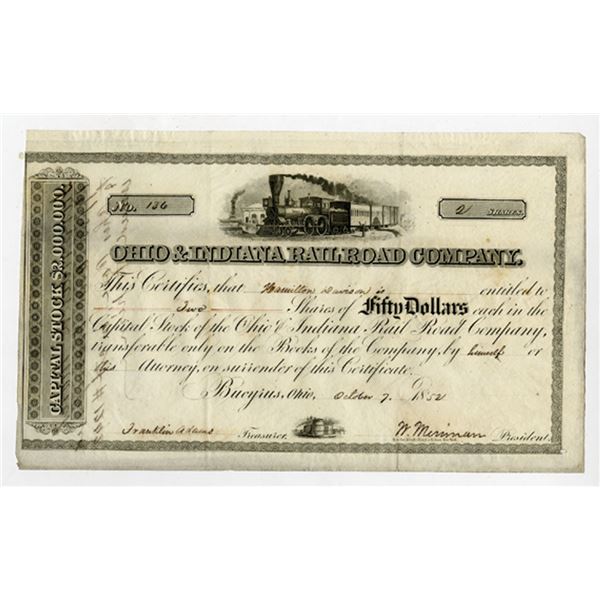 CAPITAL STOCK $2,000,000.
No. 136
2 SHARES.
OHIO & INDIANA RAIL ROAD COMPANY.
This Certifies, that Hamilton Davison is entitled to
Two Shares of Fifty Dollars each in the
Capital Stock of the Ohio & Indiana Rail Road Company,
transferable only on the Books of the Company, by himself or
his Attorney, on surrender of this Certificate.
Bucyrus, Ohio, October 7. 1852
Franklin Adams Treasurer. W. Merriman President.